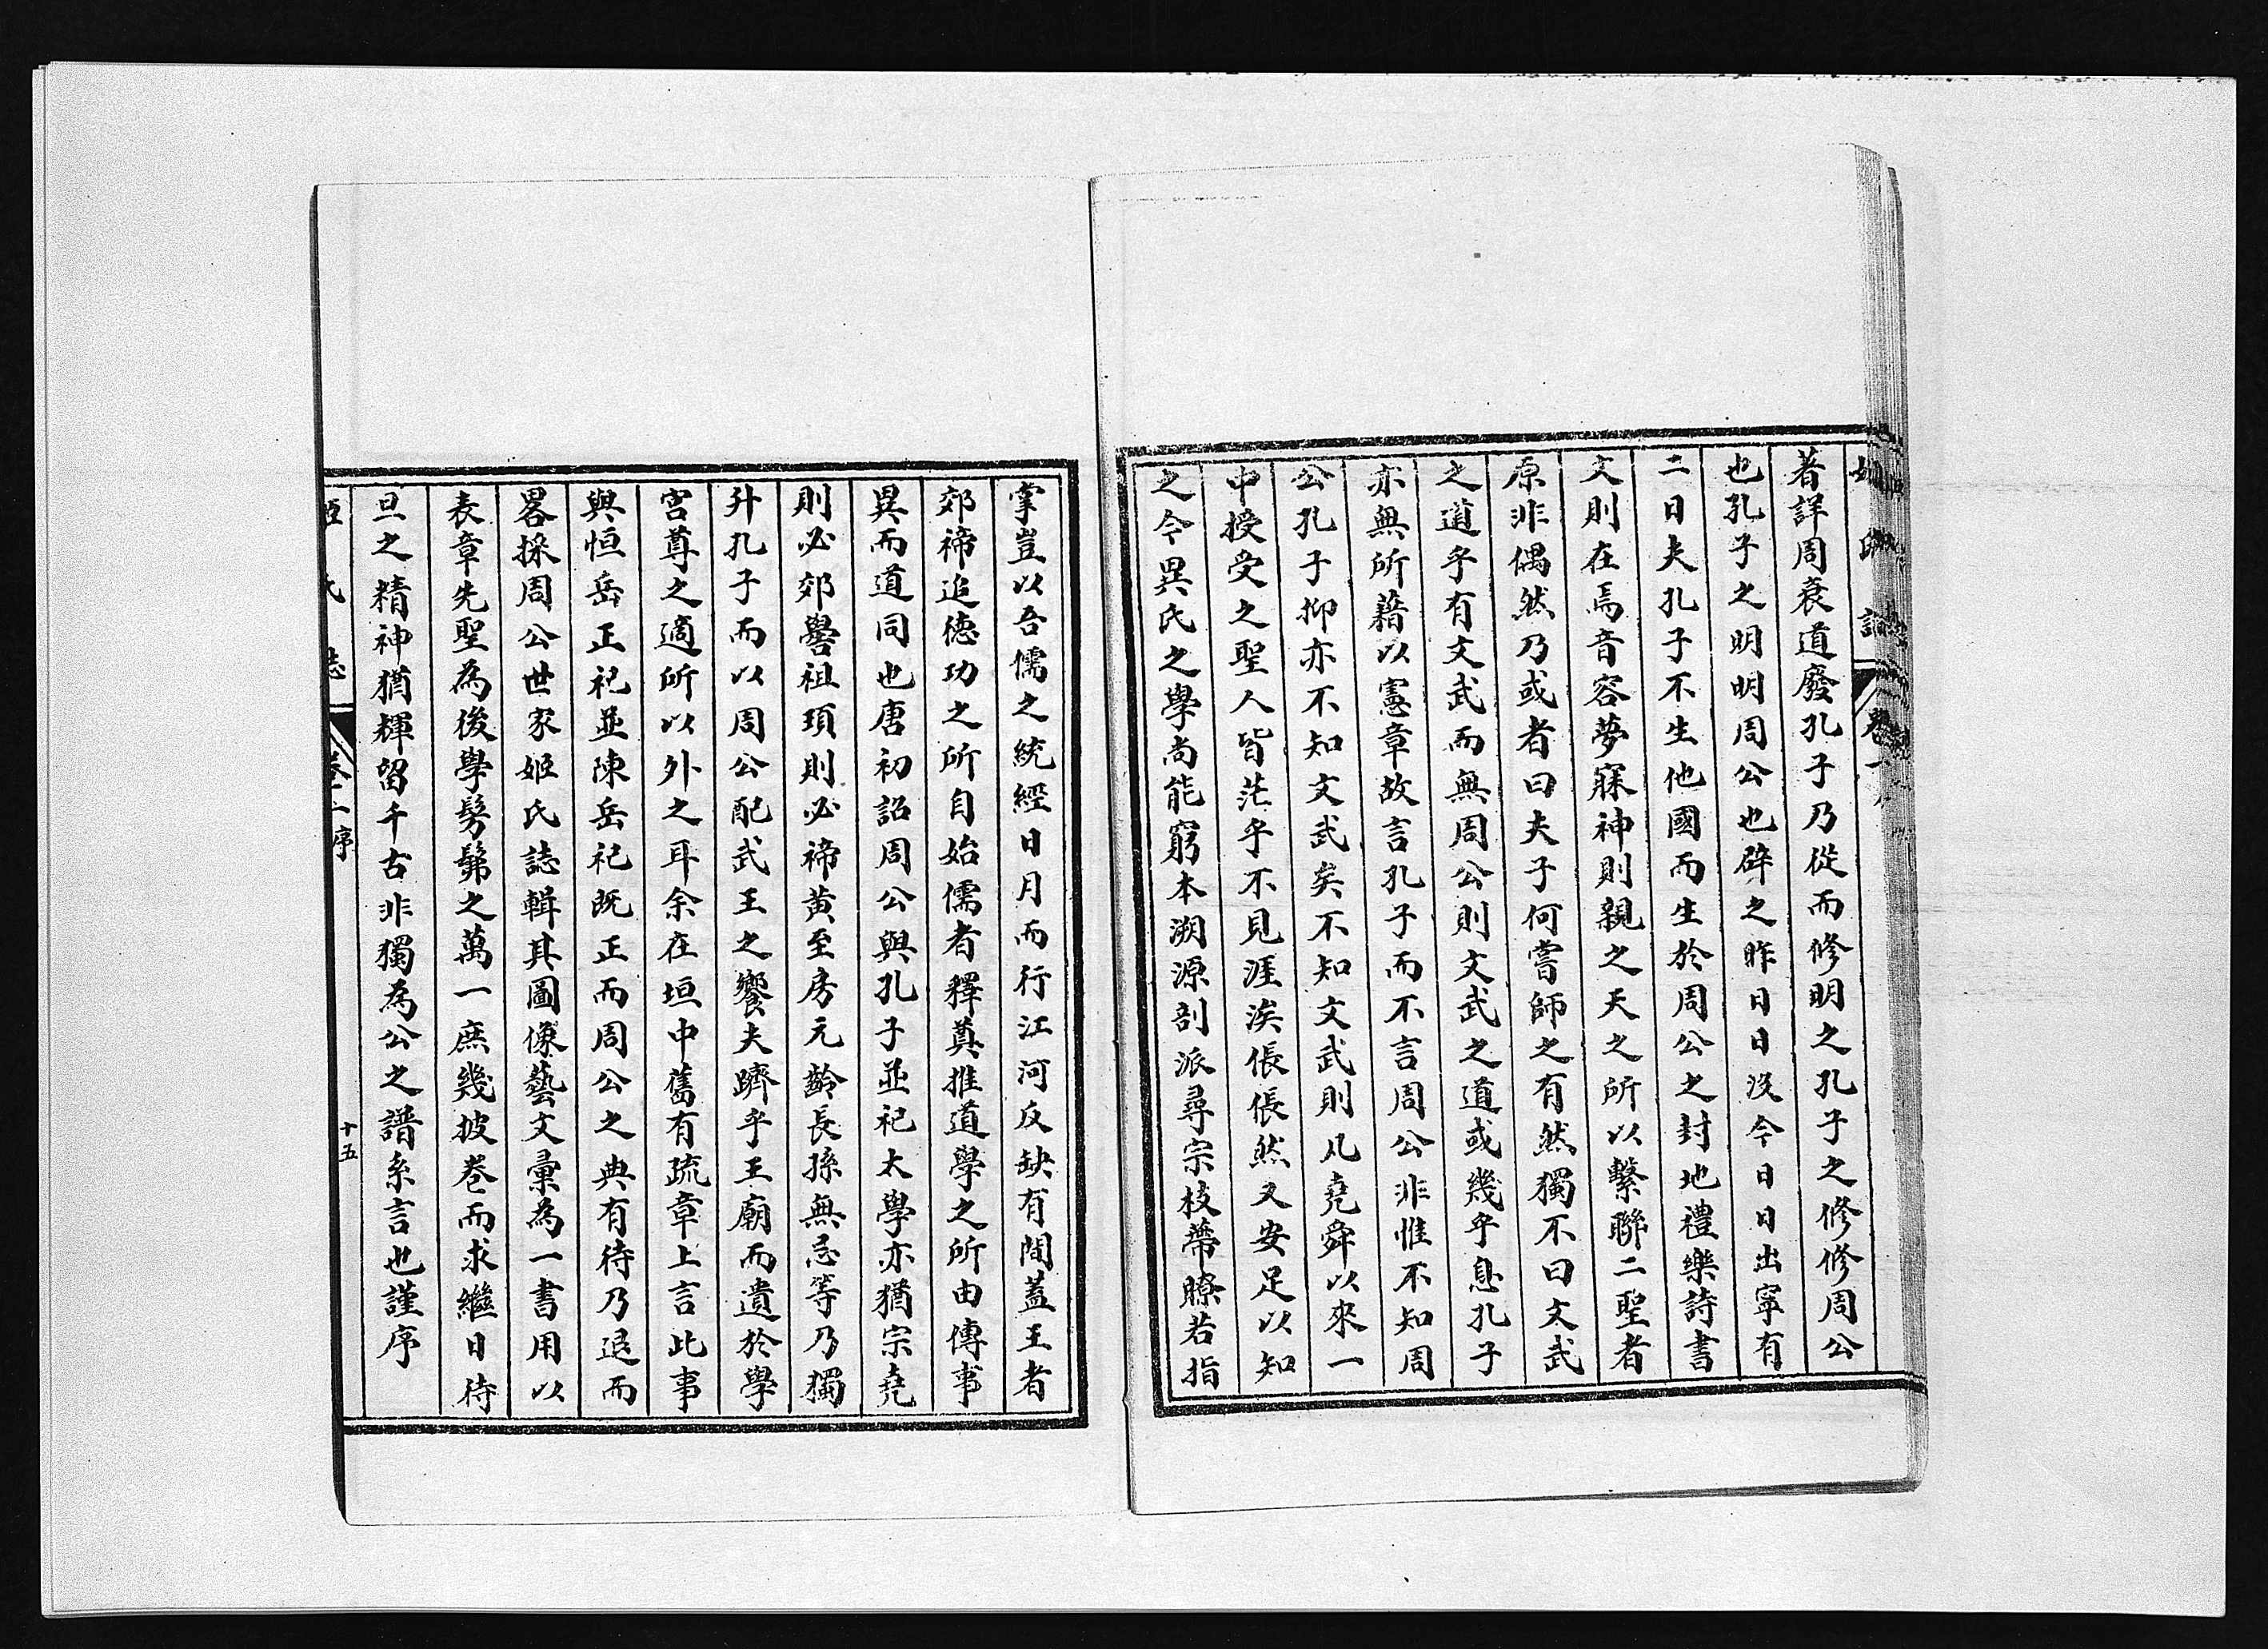 著詳周衰道廢孔子乃從而修明之孔子之修修周公
也孔子之明明周公也辟之昨日日没今日日出寧有
二日夫孔子不生他國而生於周公之封地禮樂詩書
文則在焉音容夢寐神則親之天之所以繫聯二聖者
原非偶然乃或者曰夫子何嘗師之有然獨不曰文武
之道乎有文武而無周公則文武之道或幾乎息孔子
亦無所藉以憲章故言孔子而不言周公非惟不知周
公孔子抑亦不知文武矣不知文武則凡堯舜以來一
中授受之聖人皆茫乎不見涯涘倀倀然又安足以知
之今異氏之學尚能窮本溯源剖派尋宗枝蒂瞭若指
掌豈以吾儒之統經日月而行江河反缺有間蓋王者
郊禘追德功之所自始儒者釋奠推道學之所由傳事
異而道同也唐初詔周公與孔子並祀太學亦猶宗堯
則必郊嚳祖頊則必禘黃至房元齡長孫無忌等乃獨
升孔子而以周公配武王之饗夫躋乎王廟而遺於學
宮尊之適所以外之耳余在垣中舊有疏章上言此事
與恒岳正祀並陳岳祀既正而周公之典有待乃退而
畧採周公世家姬氏誌輯其圖像藝文彙為一書用以
表章先聖為後學髣髴之萬一庶幾披卷而求繼日待
旦之精神猶輝留千古非獨為公之譜系言也謹序
姬氏誌 卷二序 十五